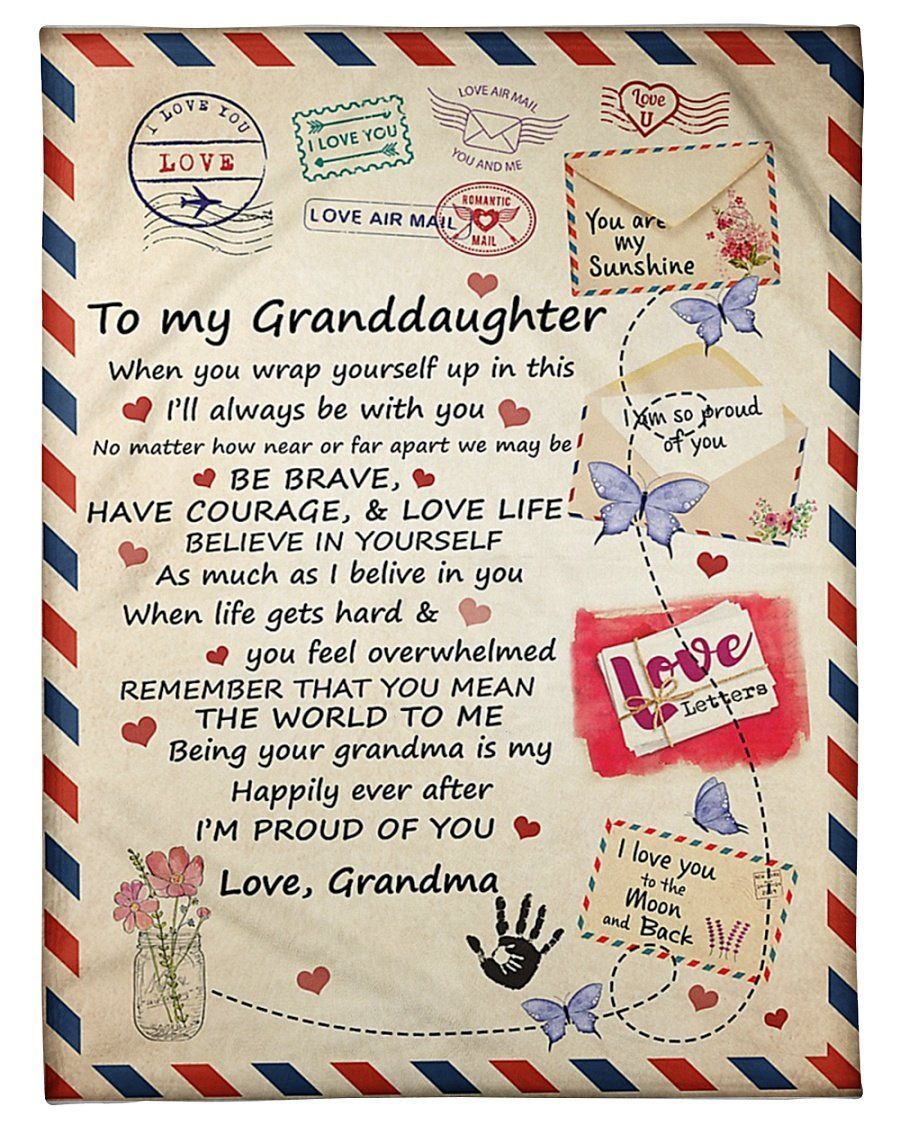 I LOVE YOU
LOVE
I LOVE YOU
LOVE AIR MAIL
YOU AND ME
Love
U
LOVE AIR MAIL
ROMANTIC
MAIL
You are
my
Sunshine
To my Granddaughter
When you wrap yourself up in this
I'll always be with you
No matter how near or far apart we may be
BE BRAVE,
HAVE COURAGE, & LOVE LIFE
BELIEVE IN YOURSELF
As much as I belive in you
When life gets hard &
you feel overwhelmed
REMEMBER THAT YOU MEAN
THE WORLD TO ME
Being your grandma is my
Happily ever after
I'M PROUD OF YOU
Love, Grandma
I am so proud
of you
Love
Letters
I love you
to the
Moon
and Back